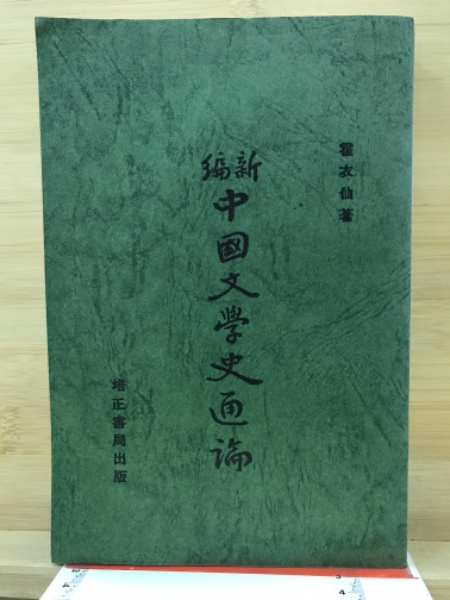 霍衣仙著
新編
中國文學史通論
培正書局出版